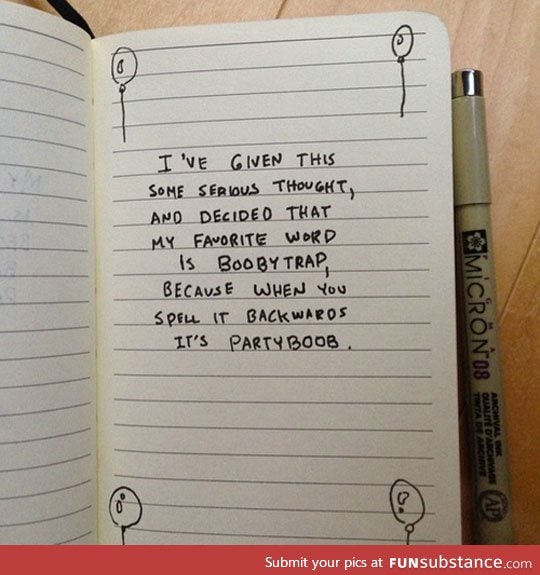 I'VE GIVEN THIS
SOME SERIOUS THOUGHT,
AND DECIDED THAT
MY FAVORITE WORD
IS BOOBYTRAP,
BECAUSE WHEN YOU
SPELL IT BACKWARDS
IT'S PARTYBOOB.
SAKURA
MICRON 08
ARCHIVAL INK
QUALITÉ D'ARCHIVAGE
TINTA DE ARCHIVO
AP
Submit your pics at FUNsubstance.com